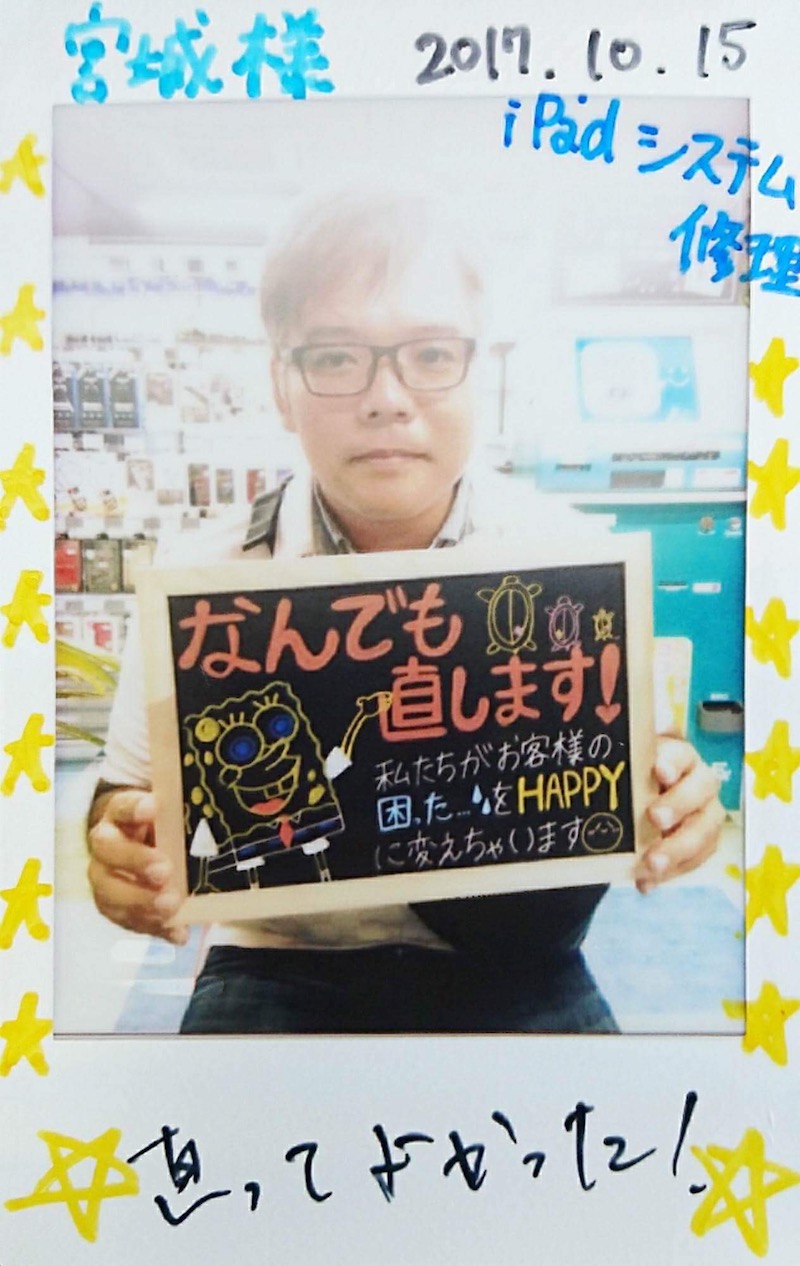 宮城様 2017.10.15
iPad システム
修理
なんでも
直します!
私たちがお客様の、
困った...を HAPPY
に変えちゃいます
直ってよかった!